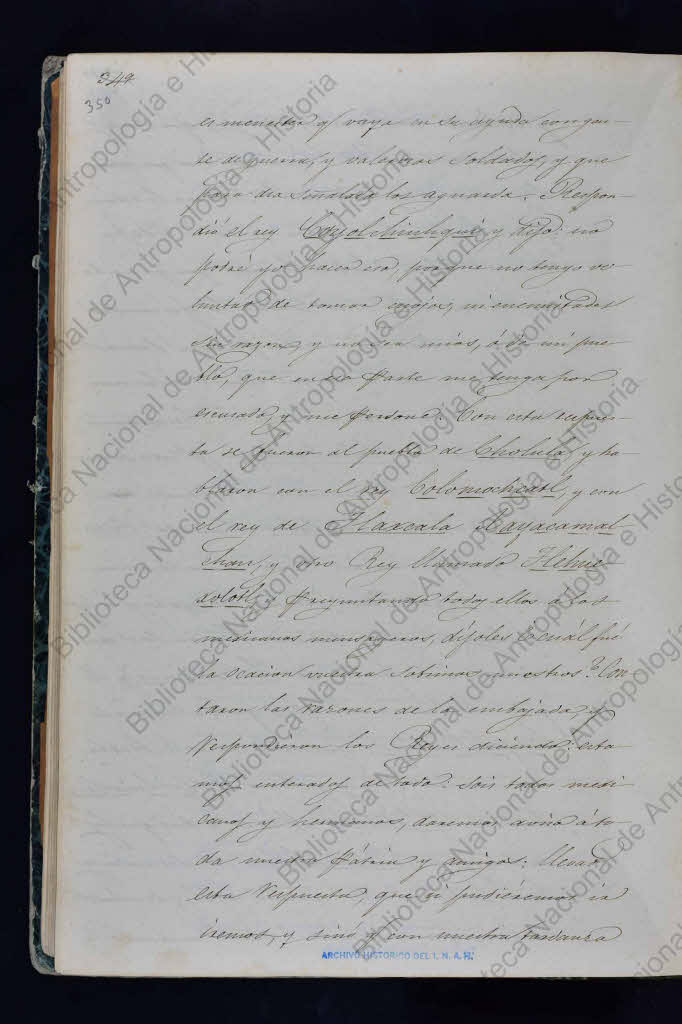 349
350
es menester q̃ vaya en su ayuda con gen-
te de guerra, y valerosos soldados, y que
para dia señalado los aguarda. Respon-
dió el rey Coyolchiuhqui, y dijo: no
podré yo hacer eso, porque no tengo vo
luntad de tomar enojos, ni enemistades
sin razon, y no sea mios, ó de mi pue-
blo, que en esa parte me tenga por
escusado, y me perdone. Con esta respues-
ta se fueron al pueblo de Cholula, y ha-
blaron con el rey Colomochcatl, y con
el rey de Tlaxcala Xayacamal
chan, y otro Rey llamado
y preguntando todos ellos á los
mexicanos mensageros, dijoles ¿cuál fué
la ocacion vuestra sobrinos nuestros? Con
taron las razones de la embajada, y
respondieron los Reyes diciendo: esta-
mos enterados de todo: sois todos mexi
canos y hermanos, daremos aviso á to-
da nuestra Pátria y amigos: llevad
esta respuesta, que si pudiéremos ir
iremos, y sinó q̃ con nuestra tardanza
ARCHIVO HISTORICO DEL I. N. A. H.
Biblioteca Nacional de Antropología e Historia